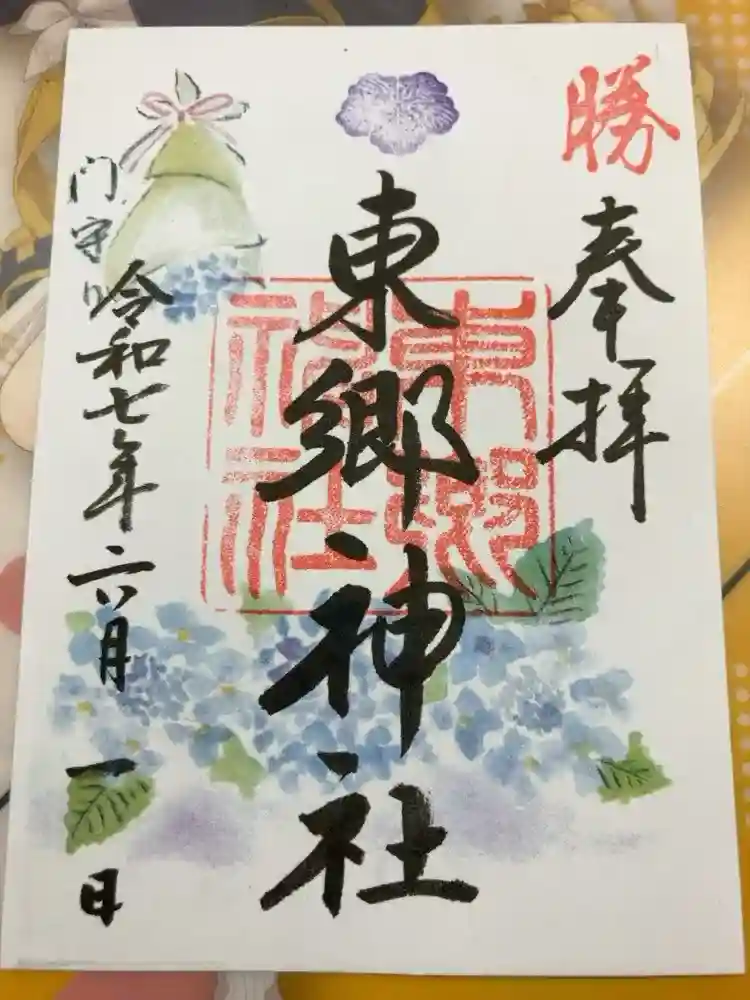 勝
奉拝
東郷神社
東郷神社
令和七年六月一日
門守り